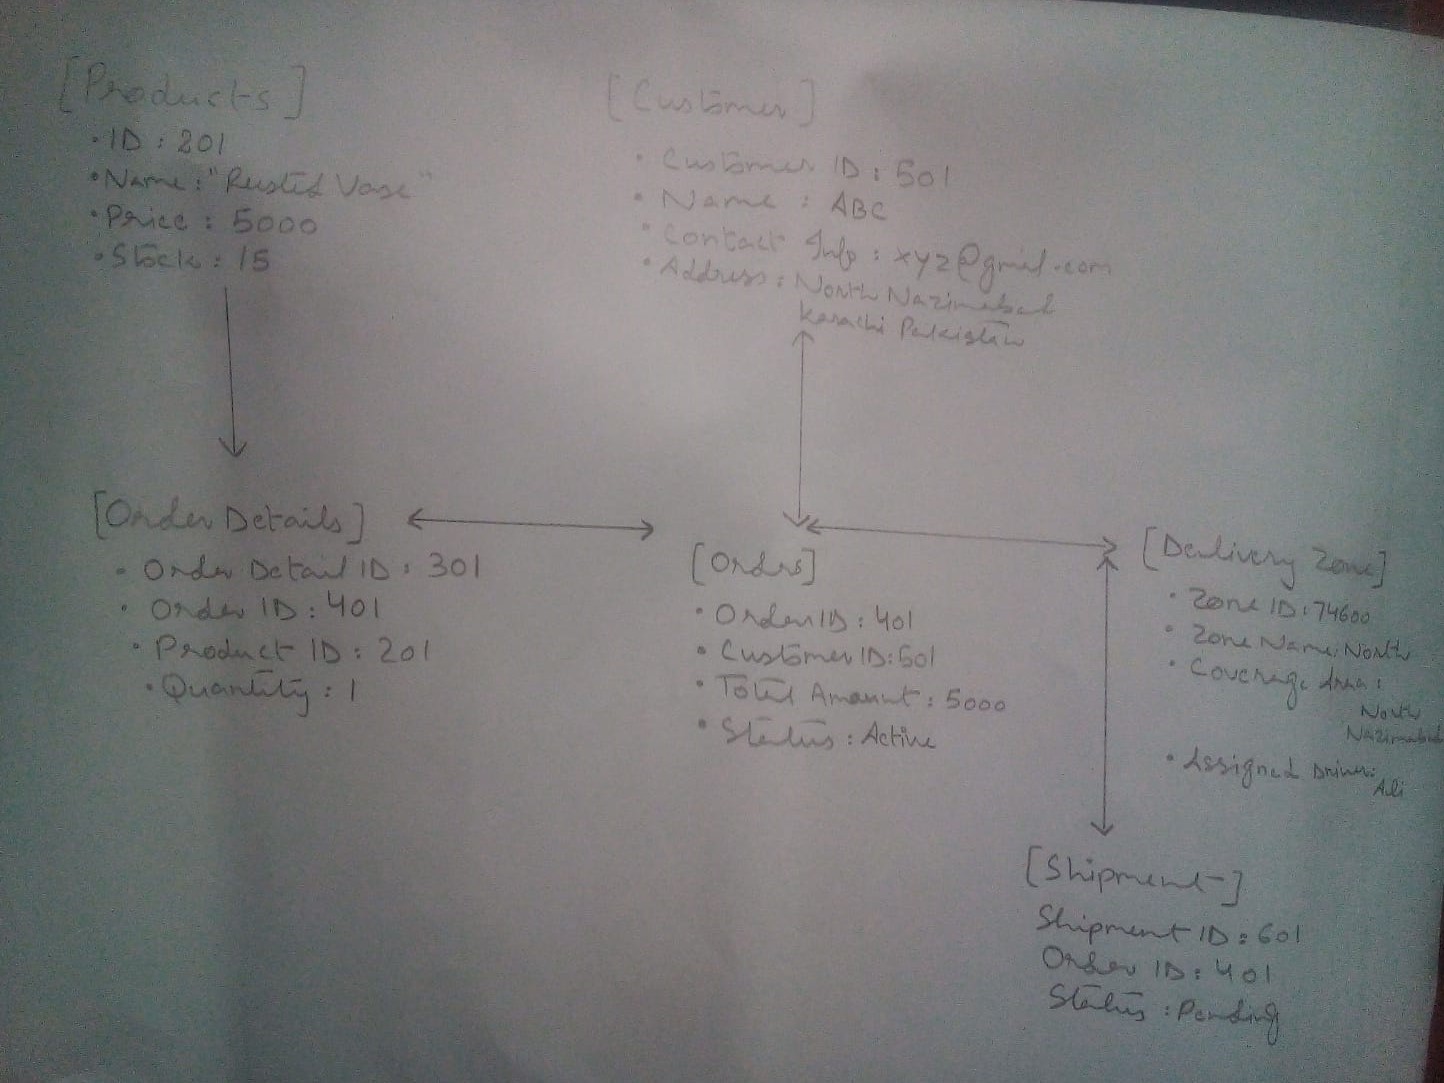 [Products]
• ID : 201
• Name : "Rusted Vase"
• Price : 5000
• Stock : 15
[Customer]
• Customer ID : 501
• Name : ABC
• Contact Info : xyz@gmail.com
• Address : North Nazimabad
Karachi Pakistan
[Order Details]
• Order Detail ID : 301
• Order ID : 401
• Product ID : 201
• Quantity : 1
[Orders]
• Order ID : 401
• Customer ID : 501
• Total Amount : 5000
• Status : Active
[Delivery Zone]
• Zone ID : 74600
• Zone Name : North
• Coverage Area :
North
Nazimabad
• Assigned Driver :
Ali
[Shipment]
Shipment ID : 601
Order ID : 401
Status : Pending